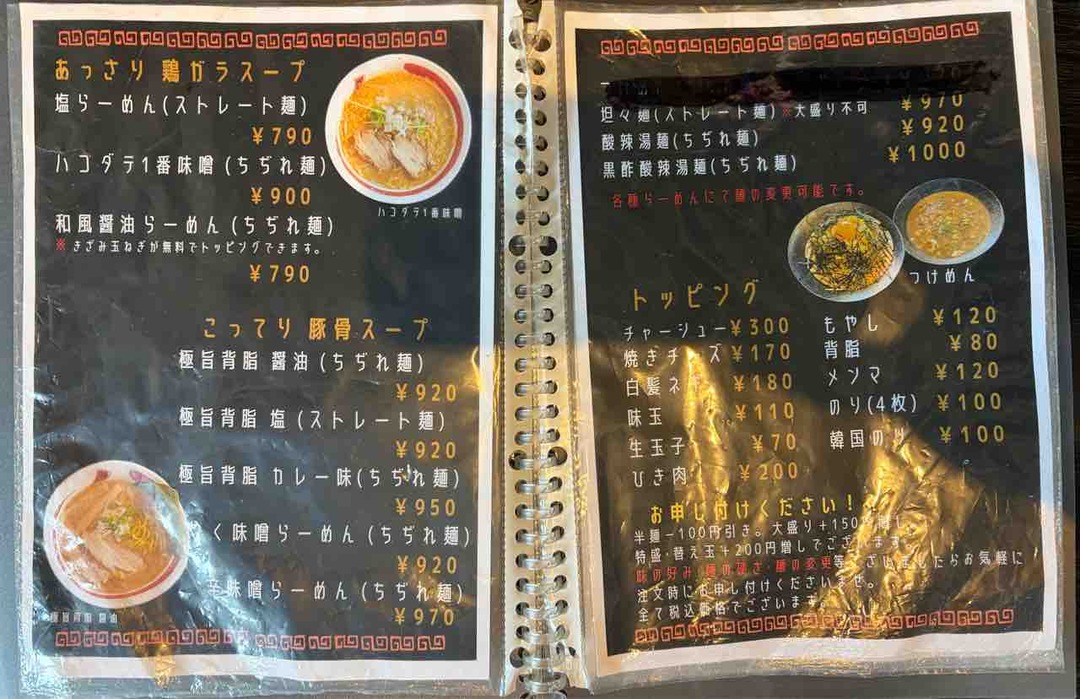 あっさり 鶏ガラスープ
塩らーめん(ストレート麺)
¥790
ハコダテ1番味噌(ちぢれ麺)
¥900
ハコダテ1番味噌
和風醤油らーめん(ちぢれ麺)
※きざみ玉ねぎが無料でトッピングできます。
¥790
こってり 豚骨スープ
極旨背脂 醤油(ちぢれ麺)
¥920
極旨背脂 塩(ストレート麺)
¥920
極旨背脂 カレー味(ちぢれ麺)
¥950
く味噌らーめん(ちぢれ麺)
¥920
辛味噌らーめん(ちぢれ麺)
¥970
坦々麺(ストレート麺)※大盛り不可 ¥970
酸辣湯麺(ちぢれ麺) ¥920
黒酢酸辣湯麺(ちぢれ麺) ¥1000
各種らーめんにて麺の変更可能です。
つけめん
トッピング
チャーシュー¥300
焼きチーズ¥170
白髪ネ ¥180
味玉 ¥110
生玉子 ¥70
ひき肉 ¥200
もやし ¥120
背脂 ¥80
メンマ ¥120
のり(4枚) ¥100
韓国のり ¥100
お申し付けください!
半麺-100円引き。大盛り+150円増し
特盛・替え玉+200円増しでございます
味の好み・麺の硬さ・麺の変更等ございましたらお気軽に
注文時にお申し付けくださいませ。
全て税込価格でございます。